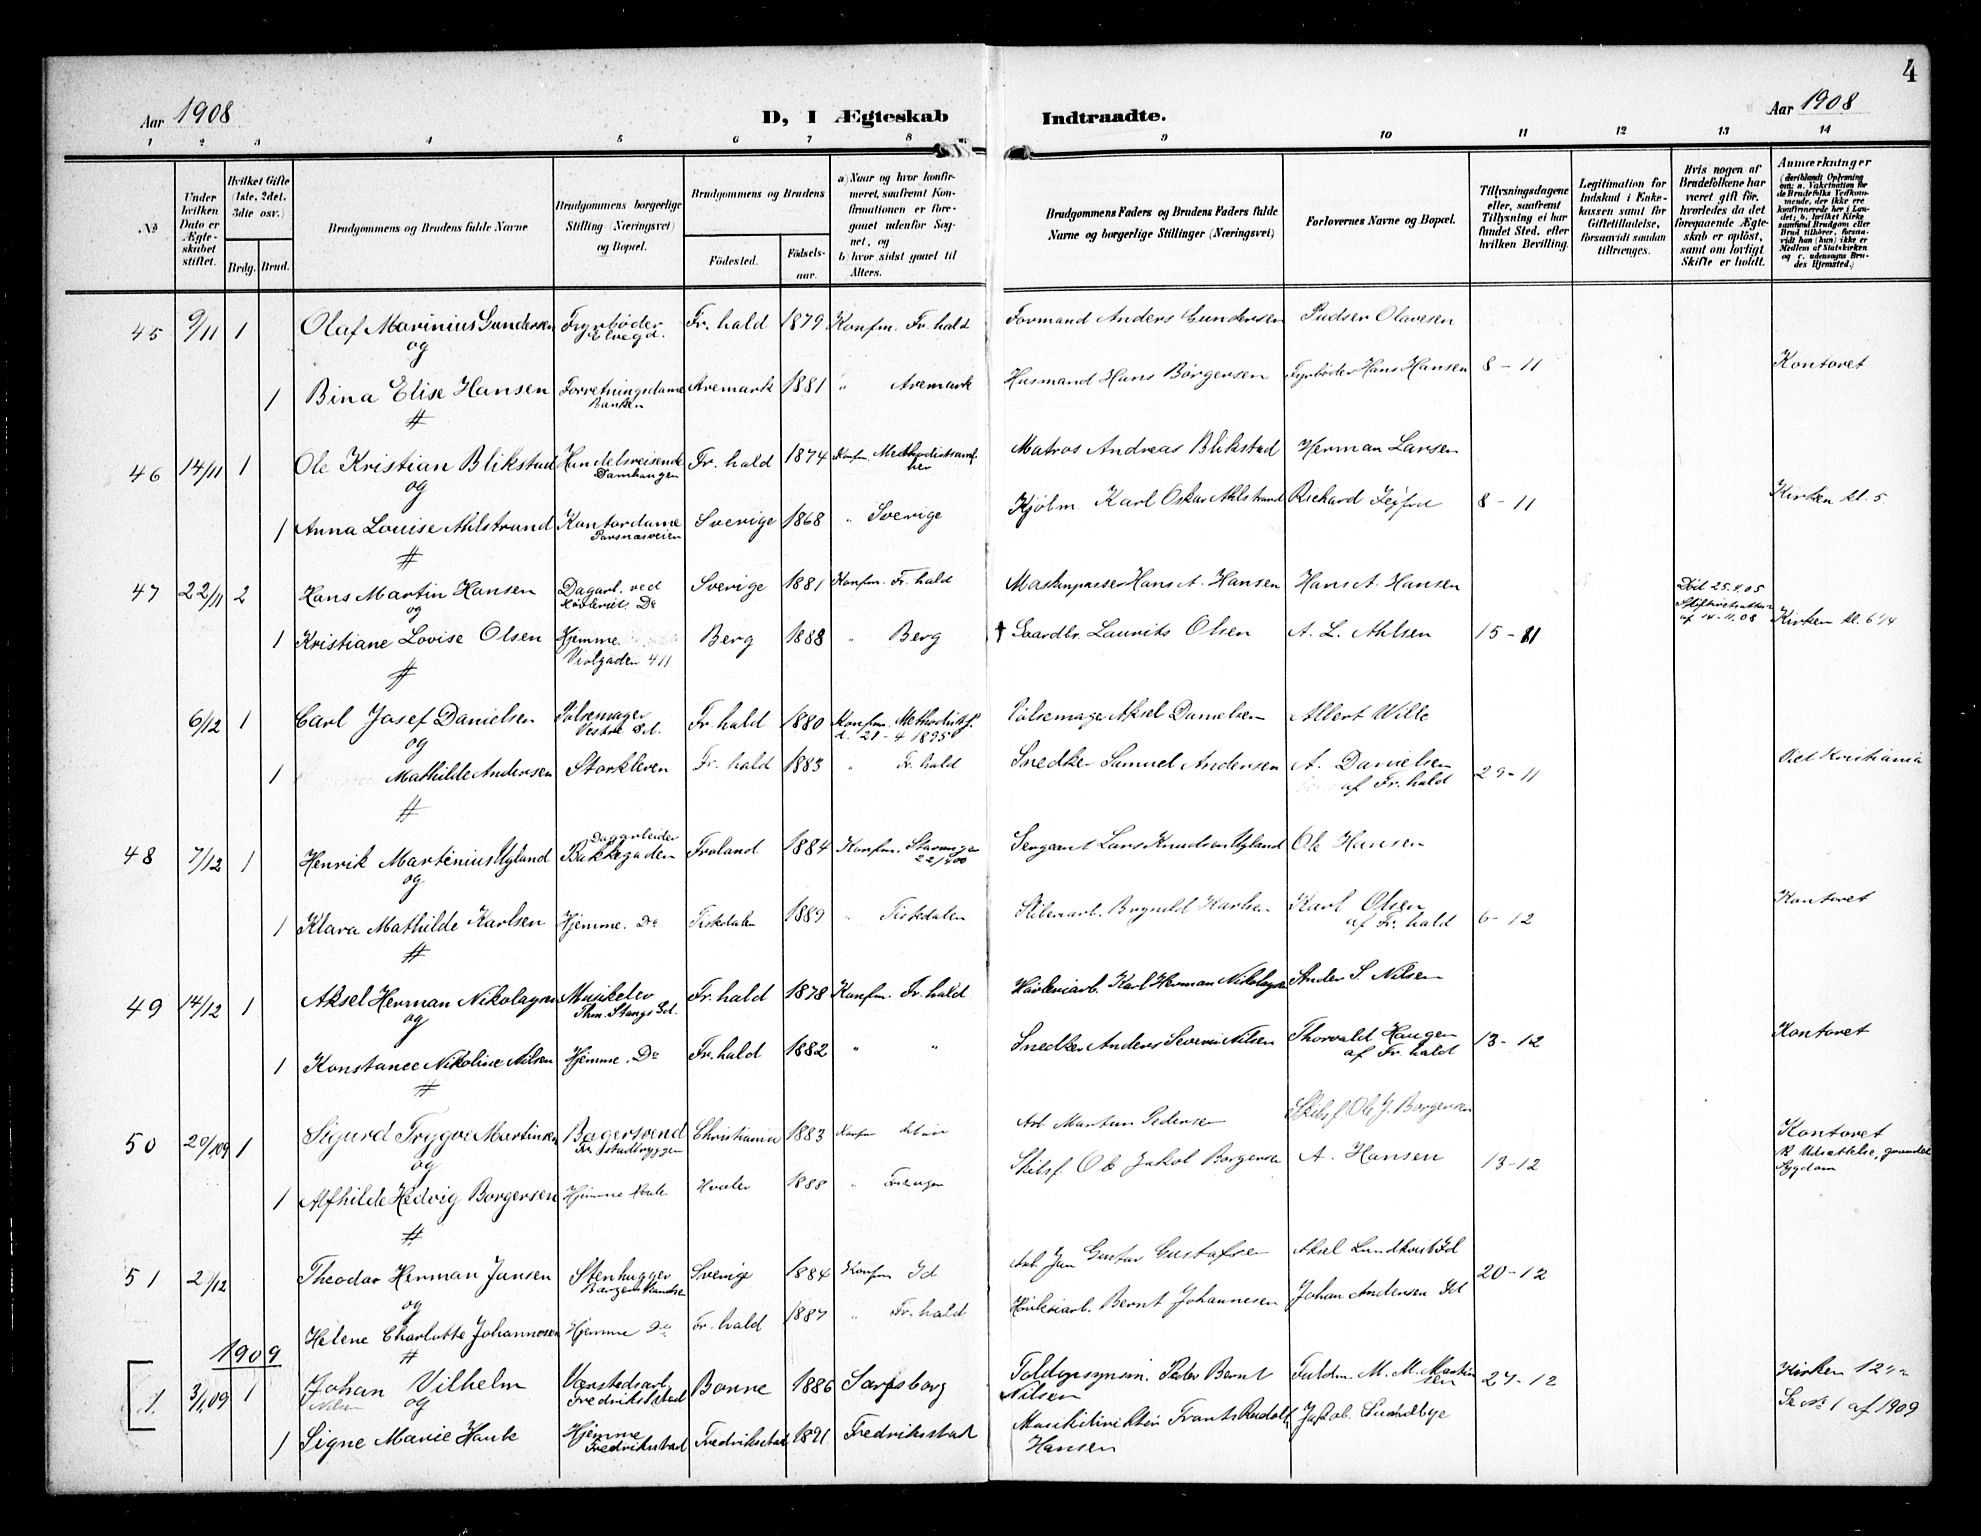 4
Aar 1908
D, I Ægteskab Indtraadte.
Aar 1908
1 2 3 4 5 6 7 8 9 10 11 12 13 14
№
Under hvilken Dato er Ægteskabet stiftet.
Hvilket Gifte (1ste, 2det, 3dte osv.)
Brdg. Brud.
Brudgommens og Brudens fulde Navne
Brudgommens borgerlige Stilling (Næringsvei) og Bopæl.
Brudgommens og Brudens
Fødested.
Fødselsaar.
a) Naar og hvor konfirmeret, saafremt Konfirmationen er foregaaet udenfor Sognet, og
b) hvor sidst gaaet til Alters.
Brudgommens Faders og Brudens Faders fulde Navne og borgerlige Stillinger (Næringsvei)
Forlovernes Navne og Bopæl.
Tillysningsdagene eller, saafremt Tillysning ei har fundet Sted, efter hvilken Bevilling.
Legitimation for Indskud i Enkekassen samt for Giftetilladelse, forsaavidt saadan tiltrænges.
Hvis nogen af Brudefolkene har været gift før, hvorledes da det foregaaende Ægteskab er opløst, samt om lovligt Skifte er holdt.
Anmærkninger
45 9/11 1 Olaf Marinius Gundersen Fyrbøder Elvegd. Fr. hald 1879 Konfm. Fr. hald Formand Anders Gundersen Pudser Olavesen
og
1 Bina Elise Hansen Forretningsdame Banken Aremark 1881 " Aremark Husmand Hans Børgersen Fyrbøder Hans Hansen 8-11 Kontoret
46 14/11 1 Ole Kristian Blikstad Handelsreisende Damhaugen Fr. hald 1874 Konfm. Matros Andreas Blikstad Herman Larsen
og
1 Anna Louise Ahlstrand Kontordame Sverige 1868 " Sverige Kjølm. Karl Oskar Ahlstrand Richard 8-11 Kirken kl. 5
47 22/11 2 Hans Martin Hansen Dagarb. ved Sverige 1881 Konfm. Fr. hald Maskinpasser Hans A. Hansen Hans A. Hansen
og
1 Kristiane Lovise Olsen Hjemme. Violgaden 411 Berg 1888 " Berg † Gaardbr. Laurits Olsen A. L. Ahlsen 15-11 Død 25.4.05 Kirken kl. 6 1/4
6/12 1 Carl Josef Danielsen Pølsemager Fr. hald 1880 Konfm. Methodistk. d. 21-4 1895 Pølsemager Aksel Danielsen Albert Wille
og
1 Mathilde Andersen Storkleven Fr. hald 1883 " Fr. hald Snedker Samuel Andersen A. Danielsen af Fr. hald 29-11 Viet Kristiania
48 7/12 1 Henrik Martinius Ugland Dagarbeider Bakkegaden Froland 1884 Konfm. Stavanger Sergeant Lars Knudsen Ugland Ole Hansen
og
1 Klara Mathilde Karlsen Hjemme. Do Tistedalen 1889 " Tistedalen Karlsen Karl Olsen af Fr. hald 6-12 Kontoret
49 14/12 1 Aksel Herman Nikolaysen Musikelev Thm. Stangs Gd. Fr. hald 1878 Konfm. Fr. hald Høvleriarb. Karl Herman Nikolaysen Anders S. Nilsen
og
1 Konstance Nikoline Nilsen Hjemme. Do Fr. hald 1882 " " Snedker Anders Severin Nilsen Thorvald Haugen af Fr. hald 13-12 Kontoret
50 20/1 09 1 Sigurd Trygve Martinsen Bagersvend Christiania 1883 Konfm Arb Martin Pedersen Skibsf. Ole J. Borgersen
og
1 Alfhilde Hedvig Borgersen Hjemme Hvaler 1888 " Skibsf. Ole Jakob Borgersen A. Hansen 13-12 Kontoret Udsættelse, grundet Sygdom
51 2/12 Theodor Herman Jansen Stenhugger Sverige 1884 Konfm Id Arb. Jan Gustav Gustafsen Aksel Lundkvist Id
og
Helene Charlotte Johannesen Hjemme Do Fr. hald 1887 " Fr. hald Høvleriarb. Bernt Johannesen Johan Andersen Id 20-12
1909
1. 3/1 09 1 Johan Vilhelm Nilsen Værkstedsarb. Fredrikstad Bonne 1886 Sarpsborg Toldopsynsm. Peder Bernt Nilsen Fuldm. M. M. Martinsen 27-12 Kirken
og
1 Signe Marie Hauk Hjemme Fredrikstad Fredrikstad 1891. Fredrikstad Frants Rudolf Hansen Jakob Sundbye Se № 1 af 1909